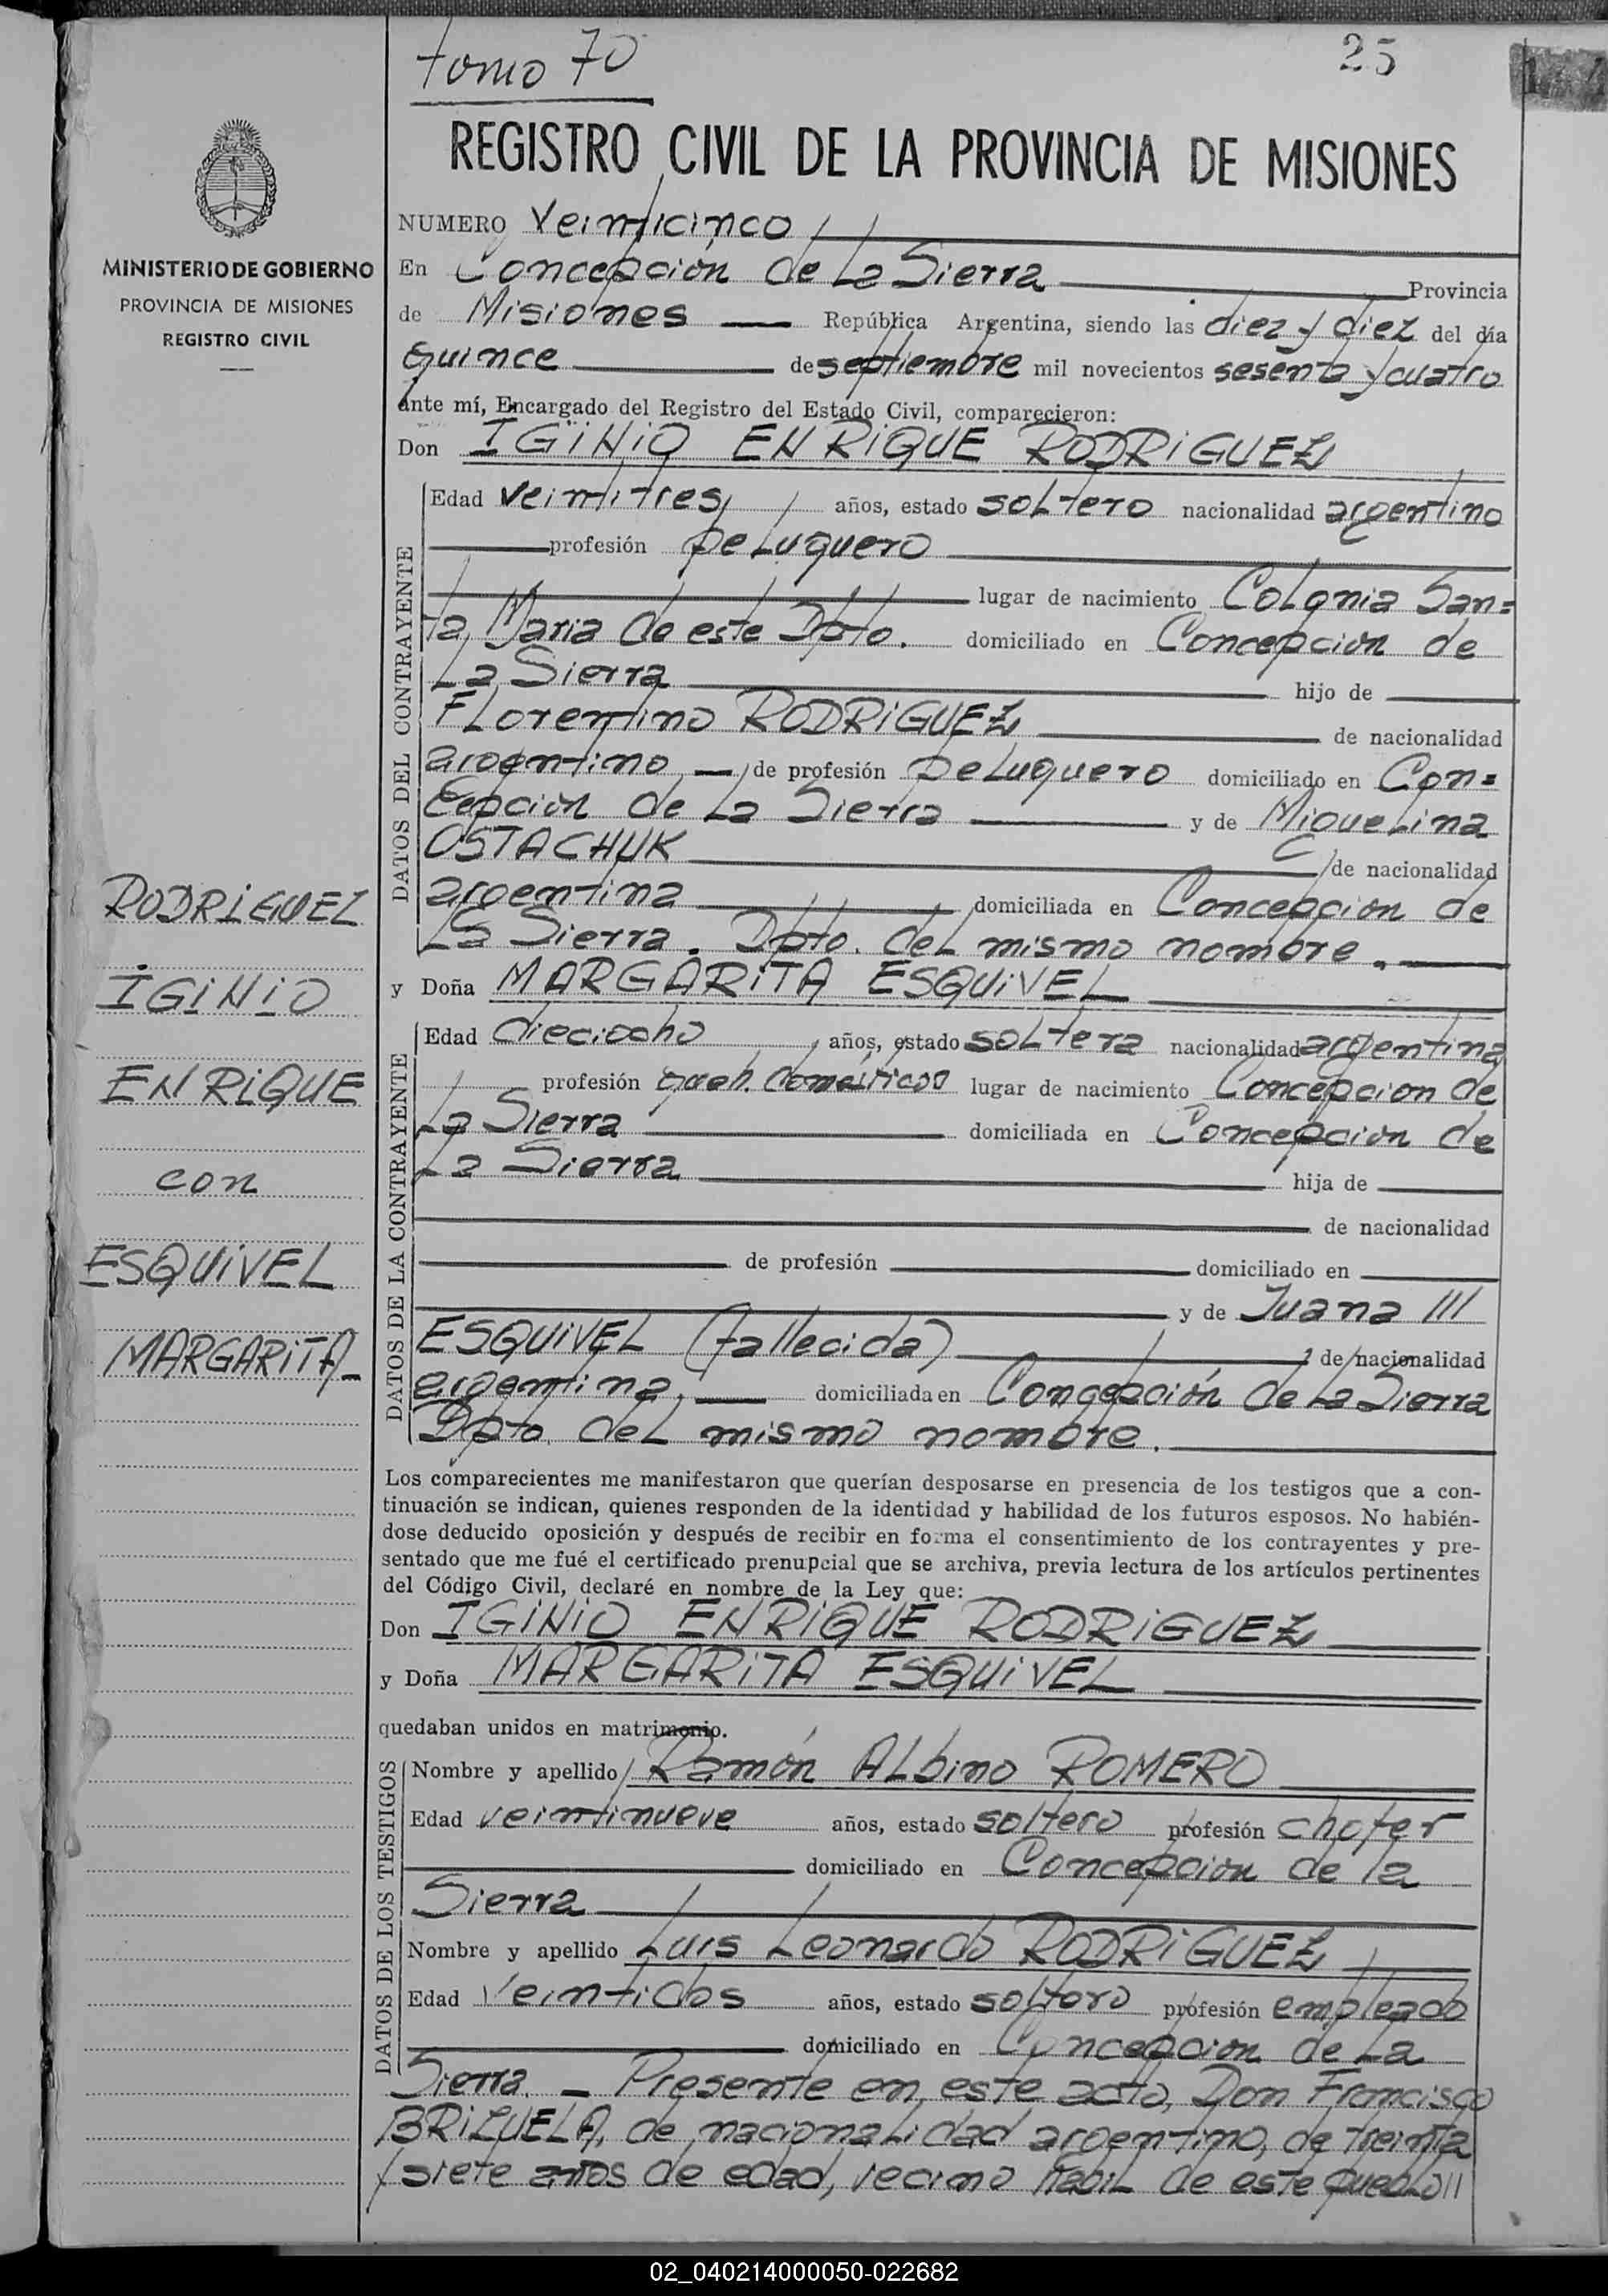 tomo 70
25
REGISTRO CIVIL DE LA PROVINCIA DE MISIONES
MINISTERIO DE GOBIERNO
PROVINCIA DE MISIONES
REGISTRO CIVIL
NUMERO Veinticinco
En Concepción de La Sierra Provincia
de Misiones República Argentina, siendo las diez y diez del día
quince de septiembre mil novecientos sesenta y cuatro
ante mí, Encargado del Registro del Estado Civil, comparecieron:
Don IGINIO ENRIQUE RODRIGUEZ
DATOS DEL CONTRAYENTE
Edad veintitres años, estado soltero nacionalidad argentino
profesión peluquero
lugar de nacimiento Colonia San=
ta Maria de este Dpto. domiciliado en Concepción de
La Sierra hijo de
Florentino RODRIGUEZ de nacionalidad
argentino de profesión peluquero domiciliado en Con=
cepción de La Sierra y de Miguelina
OSTACHUK de nacionalidad
argentina domiciliada en Concepcion de
La Sierra. Dpto. del mismo nombre.
y Doña MARGARITA ESQUIVEL
DATOS DE LA CONTRAYENTE
Edad dieciocho años, estado soltera nacionalidad argentina
profesión queh. domésticos lugar de nacimiento Concepcion de
La Sierra domiciliada en Concepción de
La Sierra hija de
de nacionalidad
de profesión domiciliado en
y de Juana III
ESQUIVEL (fallecida) de nacionalidad
argentina, domiciliada en Concepción de La Sierra
Dpto. del mismo nombre.
RODRIGUEZ
IGINIO
ENRIQUE
con
ESQUIVEL
MARGARITA-
Los comparecientes me manifestaron que querían desposarse en presencia de los testigos que a con-
tinuación se indican, quienes responden de la identidad y habilidad de los futuros esposos. No habién-
dose deducido oposición y después de recibir en forma el consentimiento de los contrayentes y pre-
sentado que me fué el certificado prenupcial que se archiva, previa lectura de los artículos pertinentes
del Código Civil, declaré en nombre de la Ley que:
Don IGINIO ENRIQUE RODRIGUEZ
y Doña MARGARITA ESQUIVEL
quedaban unidos en matrimonio.
DATOS DE LOS TESTIGOS
Nombre y apellido Ramón Albino ROMERO
Edad veintinueve años, estado soltero profesión chofer
domiciliado en Concepción de la
Sierra
Nombre y apellido Luis Leonardo RODRIGUEZ
Edad Veintidos años, estado soltero profesión empleado
domiciliado en Concepcion de La
Sierra. - Presente en este acto, Don Francisco
BRIZUELA, de nacionalidad argentino, de treinta
y siete años de edad, vecino habil de este pueblo//
02_040214000050-022682